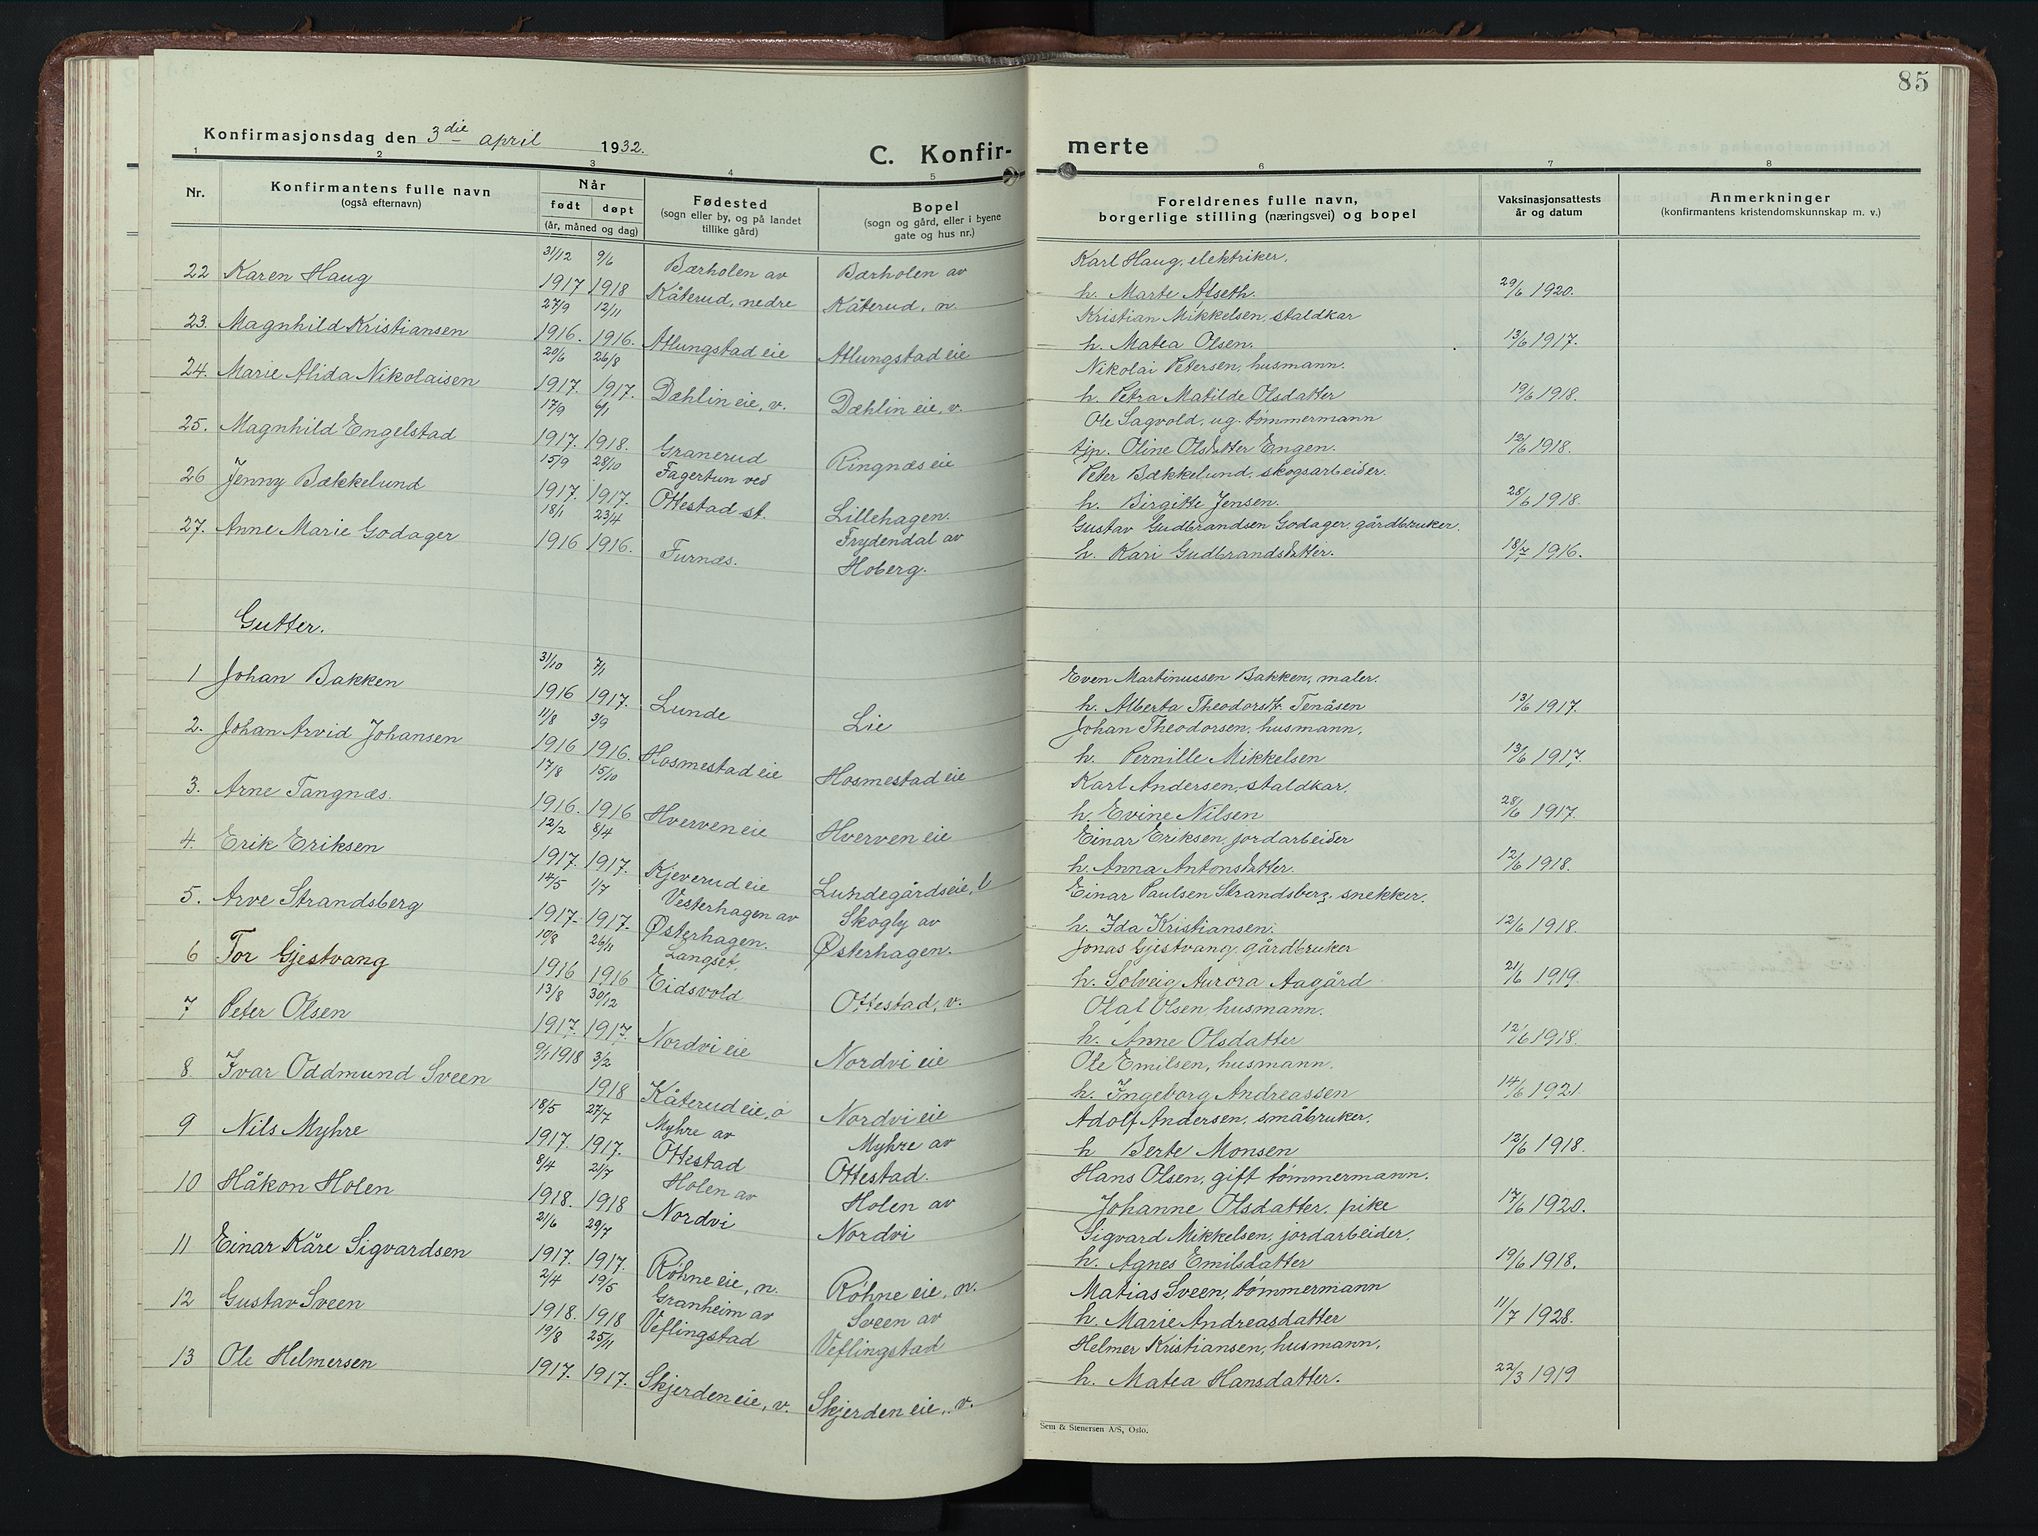 85
Konfirmasjonsdag den 3die april 1932.
C. Konfir-
merte
1 2 3 4 5 6 7 8
Nr. Konfirmantens fulle navn (også efternavn) Når født døpt (år, måned og dag) Fødested (sogn eller by, og på landet tillike gård) Bopel (sogn og gård, eller i byene gate og hus nr.) Foreldrenes fulle navn, borgerlige stilling (næringsvei) og bopel Vaksinasjonsattests år og datum Anmerkninger (konfirmantens kristendomskunnskap m. v.)
22 Karen Haug 31/12 1917 9/6 1918 Bærholen av Kåterud, nedre Bærholen av Kåterud, n. Karl Haug, elektriker, h. Marte Alseth. 29/6 1920.
23. Magnhild Kristiansen 27/9 1916. 12/11 1916. Atlungstad eie Atlungstad eie Kristian Mikkelsen, staldkar h. Matea Olsen. 13/6 1917.
24. Marie Alida Nikolaisen 20/6 1917. 26/8 1917. Dæhlin eie, v. Dæhlin eie, v. Nikolai Petersen, husmann. h. Petra Matilde Olsdatter 19/6 1918.
25. Magnhild Engelstad 17/9 1917. 6/1 1918. Granerud Ringnæs eie Ole Sagvold, ug. tømmermann tjp. Oline Olsdatter Engen. 12/6 1918.
26 Jenny Bækkelund 15/9 1917. 28/10 1917. Fagertun ved Ottestad st. Lillehagen. Peter Bækkelund, skogsarbeider. h. Birgitte Jensen. 28/6 1918.
27. Anne Marie Godager 18/1 1916 23/4 1916. Furnæs. Frydendal av Hoberg. Gustav Gudbrandsen Godager, gårdbruker. h. Kari Gudbrandsdatter. 18/7 1916.
Gutter.
1 Johan Bakken 31/10 1916 7/1 1917. Lunde Lie Even Martinussen Bakken, maler. h. Alberta Theodorsdt. Tenåsen 13/6 1917.
2. Johan Arvid Johansen 11/8 1916 3/9 1916. Hosmestad eie Hosmestad eie Johan Theodorsen, husmann, h. Pernille Mikkelsen 13/6 1917.
3. Arne Tangnæs. 17/8 1916. 15/10 1916 Hverven eie Hverven eie Karl Andersen, staldkar, h. Evine Nilsen 28/6 1917.
4. Erik Eriksen 12/2 1917. 8/4 1917. Kjeverud eie Lundegårds eie, l Einar Eriksen, jordarbeider h. Anna Antonsdatter. 12/6 1918.
5. Arve Strandsberg 14/5 1917- 1/7 1917- Vesterhagen av Østerhagen. Skogly av Østerhagen. Einar Paulsen Strandsberg, snekker. h. Ida Kristiansen. 12/6 1918.
6 Tor Gjestvang 10/8 1916 26/11 1916 Langset, Eidsvold Ottestad, v. Jonas Gjestvang, gårdbruker h. Solveig Aurora Aagård 21/6 1919.
7 Peter Olsen 13/8 1917. 30/12 1917. Nordvi eie Nordvi eie Olaf Olsen, husmann. h. Anne Olsdatter 12/6 1918.
8 Ivar Oddmund Sveen 9/1 1918 3/2 1918 Kåterud eie, ø Nordvi eie Ole Emilsen, husmann. h. Ingeborg Andreassen 14/6 1921.
9 Nils Myhre 18/5 1917. 27/7 1917. Myhre av Ottestad Myhre av Ottestad. Adolf Andersen, småbruker. h Berte Monsen 12/6 1918.
10 Håkon Holen 8/4 1918. 21/7 1918 Holen av Nordvi Holen av Nordvi Hans Olsen, gift tømmermann. Johanne Olsdatter, pike 17/6 1920.
11 Einar Kåre Sigvardsen 21/6 1917. 29/7 1917. Røhne eie, n. Røhne eie, n. Sigvard Mikkelsen, jordarbeider. h. Agnes Emilsdatter 19/6 1918.
12 Gustav Sveen 2/4 1918. 19/5 1918 Granheim av Veflingstad Sveen av Veflingstad Matias Sveen, tømmermann h. Marie Andreasdatter 11/7 1928.
13 Ole Helmersen 19/8 1917. 25/11 1917. Skjerden eie, v. Skjerden eie, v. Helmer Kristiansen, husmann, h. Matea Hansdatter. 22/3 1919
Sem & Stenersen A/S, Oslo.